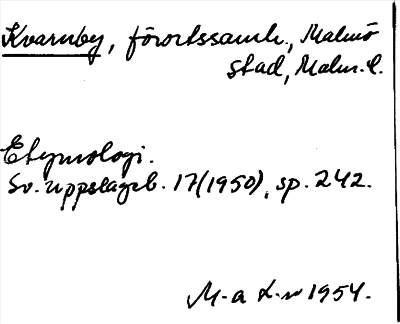 Kvarnby, förortssamh., Malmö
stad, Malm. l.
Etymologi.
Sv. uppslagsb. 17(1950), sp. 242.
M-a L-n 1954.